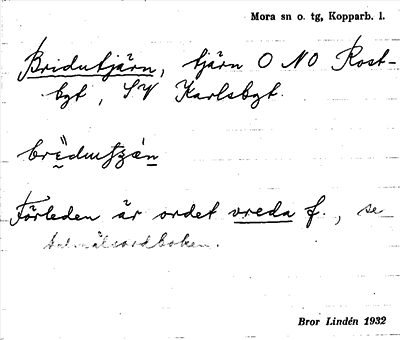 Mora sn o. tg, Kopparb. l.
Bridutjärn, tjärn O NO Rost-
bgt, SV Karlsbgt.
Förleden är ordet vreda f., se
talmålsordboken.
Bror Lindén 1932